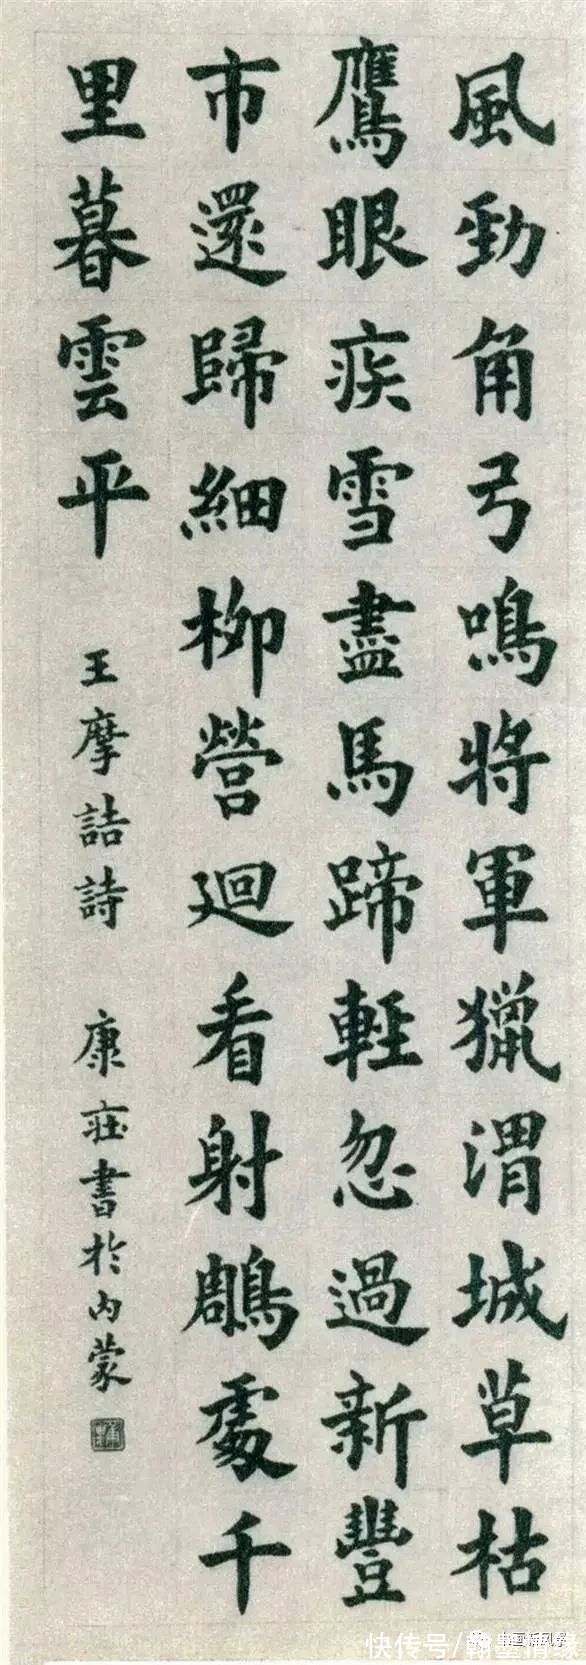 風勁角弓鳴將軍獵渭城草枯
鷹眼疾雪盡馬蹄輕忽過新豐
市還歸細柳營迴看射鵰處千
里暮雲平
王摩詰詩 康莊書於內蒙
快传号/翰墨情缘